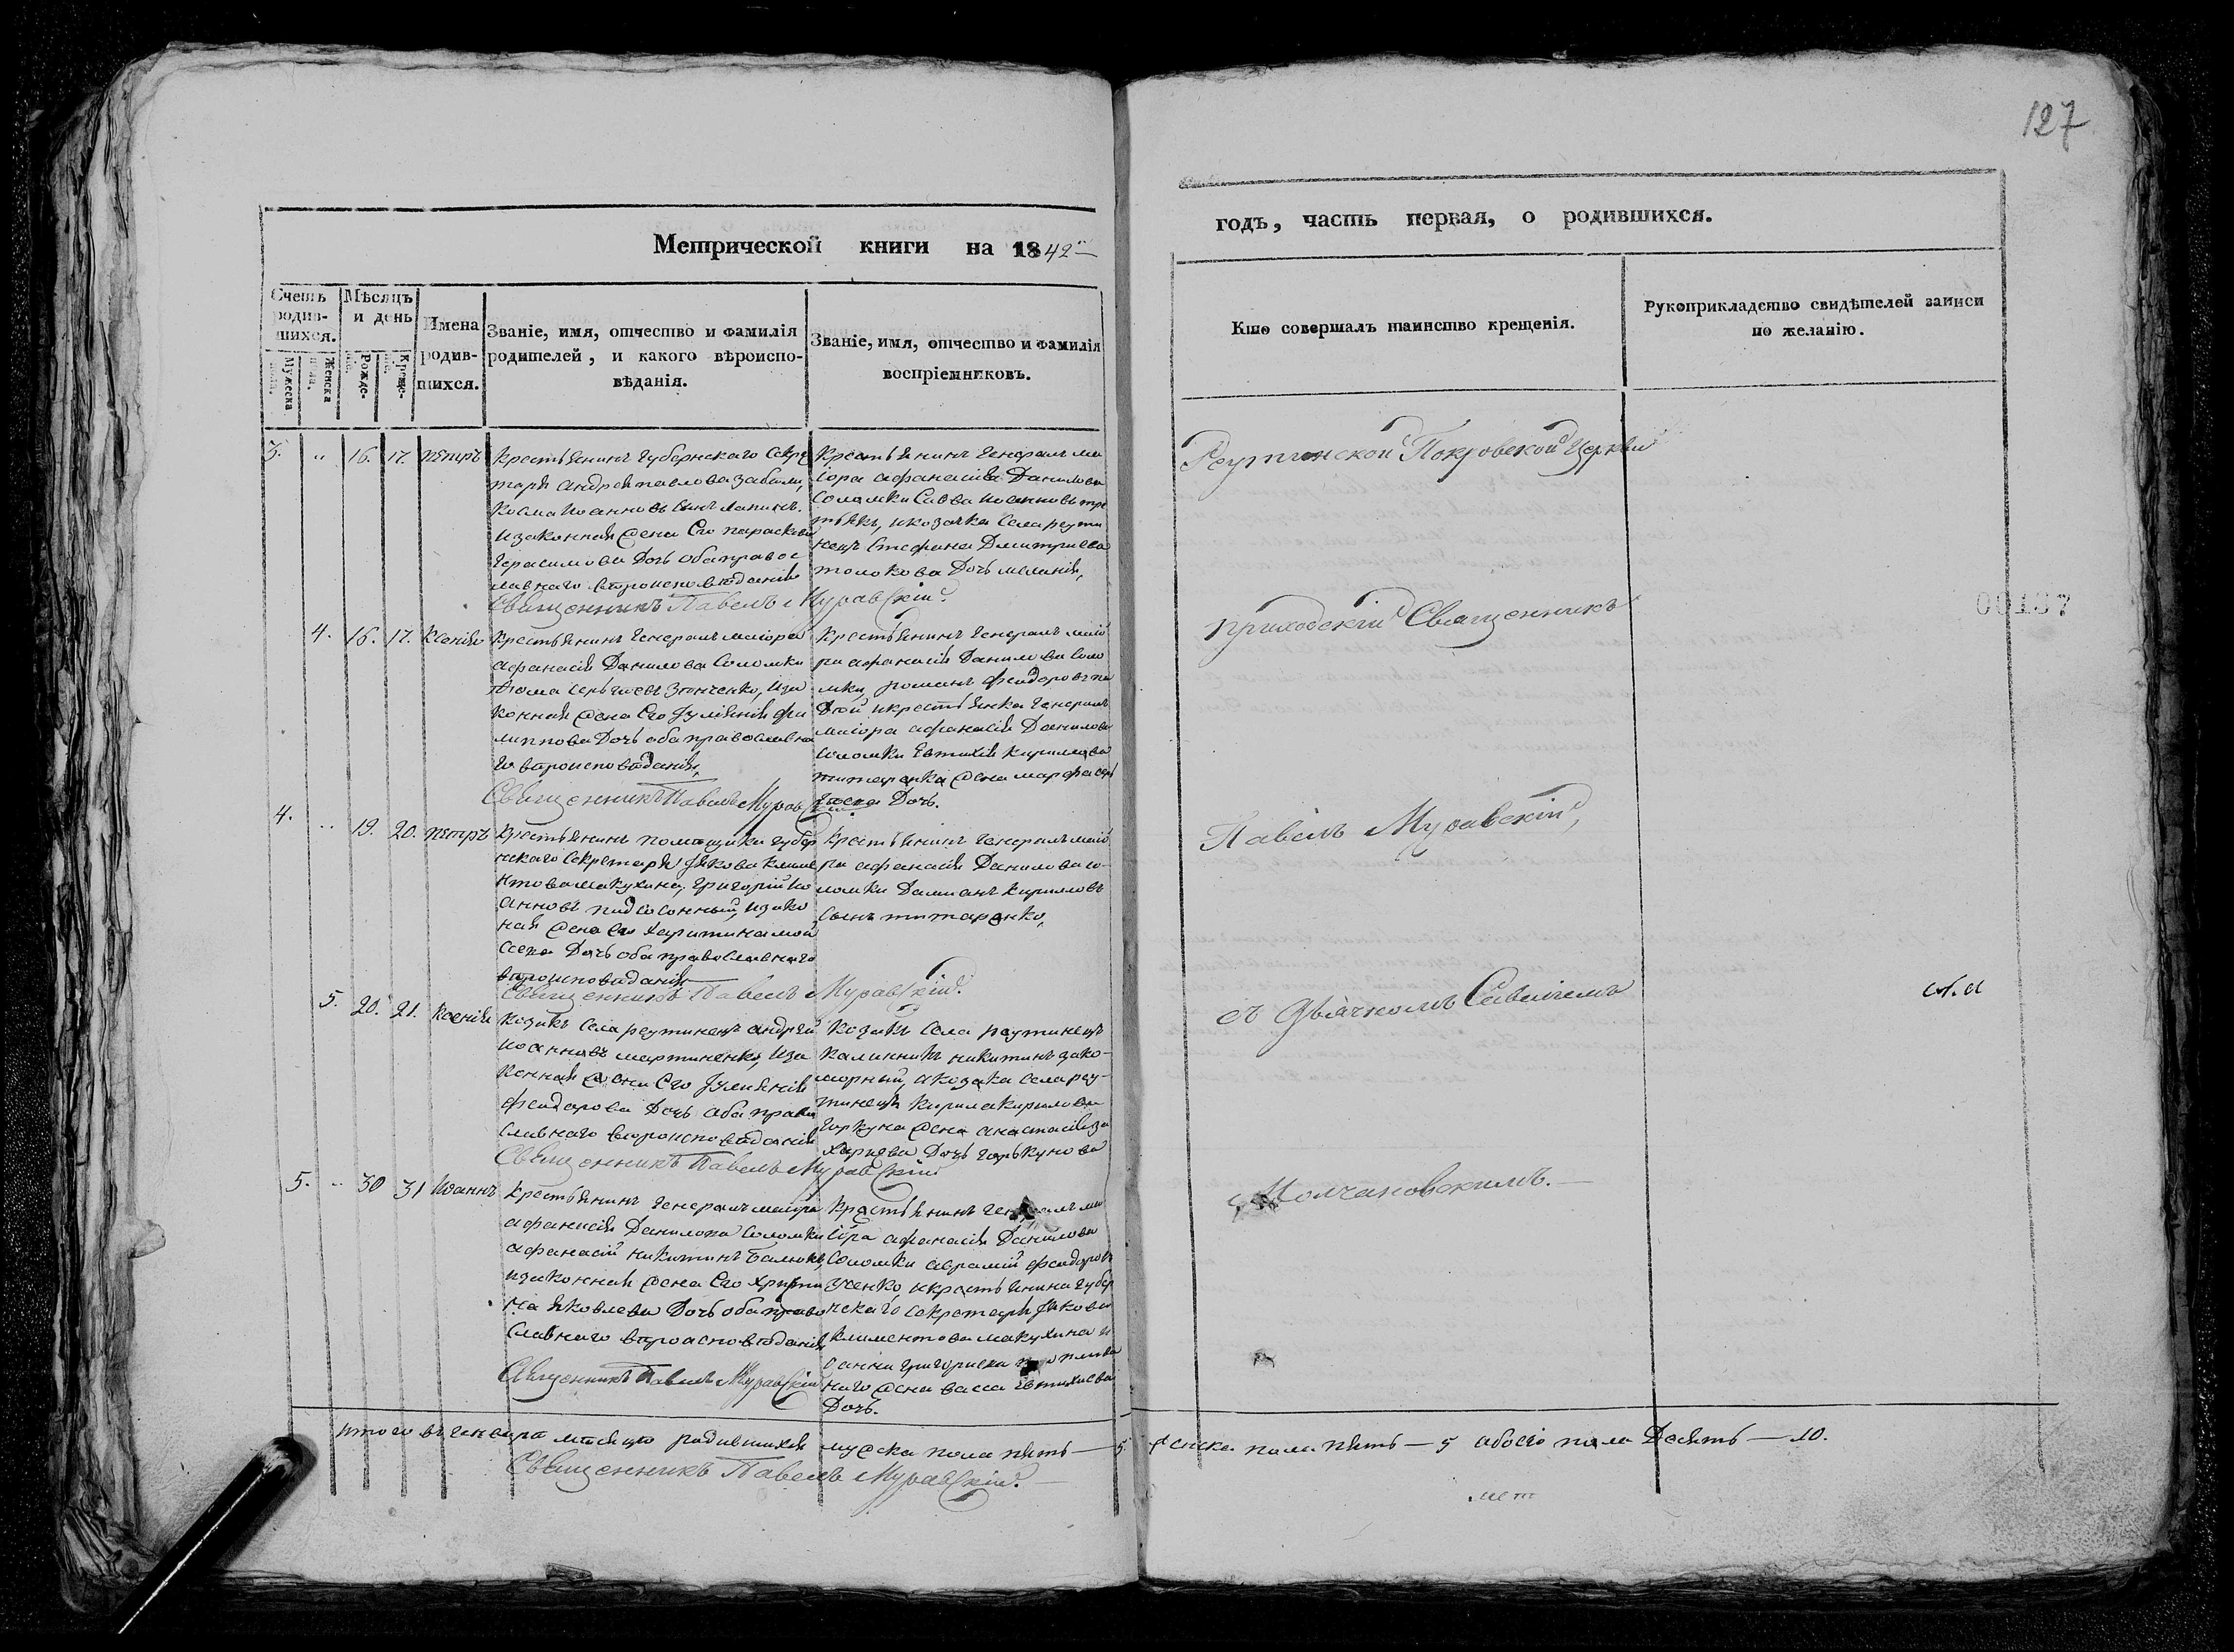 127
Метрической книги на 1842й
годъ, часть первая, о родившихся.
Счетъ родив-шихся.
Мужеска пола.
Женска пола.
Мѣсяцъ и день
Рожде-нія.
Креще-нія.
Имена родив-шихся.
Званіе, имя, отчество и фамилія
родителей, и какого вѣроиспо-
вѣданія.
Званіе, имя, отчество и фамилія
воспріемниковъ.
Кто совершалъ таинство крещенія.
Рукоприкладство свидѣтелей записи
по желанію.
3. " 16. 17. Петръ
Крестьянинъ Губернскаго Секре
таря Андрея Павлова Забѣлы,
Косма Иоанновъ сынъ Лапинъ.
и законная жена Его Параскева
Герасимова Дочь оба правос
лавнаго вѣроисповѣданія
Священникъ Павелъ Муравскій.
Крестьянинъ Генералъ ма
іора Афанасія Данилова
Соломки Савва Иоанновъ тре
тьякъ, и козачка Села реути
нецъ Стефана Дмитриева
толокова Дочь Меланія,
4. 16. 17. Ксенія
Крестьянинъ Генералъ маіора
Афанасія Данилова Соломки
Фома Сергѣевъ Зѣнченко, и за
конная жена Его Іуліянія Фи
липпова Дочь оба православна
го вѣроисповѣданія,
Священникъ Павелъ Муравскій
Крестьянинъ Генералъ маіо
ра Афанасія Данилова Соло
мки, романъ Феодоровъ
и крестьянка Генералъ
маіора Афанасія Данилова
Соломки Евтихія Кирилова
титаренка жена марфа Сер
гѣева Дочь.
4. " 19. 20. Петръ
Крестьянинъ помещика Губер
нскаго Секретаря Якова Климе
нтова Макухина, Григорій Ио
анновъ подсосонный, и зако
ная жена Его Харитина Мои
сеева Дочь оба православнаго
вѣроисповѣданія
Священникъ Павелъ Муравскій.
Крестьянинъ Генералъ маіо
ра Афанасія Данилова Со-
ломки Дамианъ Кириловъ
Сынъ титаренко,
5. 20. 21. Ксенія
Козакъ Села реутинецъ Андрей
Иоанновъ мартиненко, и за
конная жена Его Іулиянія
Феодорова Дочь оба право
славнаго вѣроисповѣданія
Священникъ Павелъ Муравскій
Козакъ Села реутинецъ
Калинникъ никитинъ зако-
морный, и козака Села реу-
тинецъ Кирила Кирилова
Горкуна жена Анастасія за
харіева Дочь горькунова
5. " 30 31 Иоаннъ
Крестьянинъ Генералъ маіора
Афанасія Данилова Соломки
Афанасій никитинъ Балюкъ,
и законная жена Его Христи
на Яковлева Дочь оба право
славнаго вѣроисповѣданія
Священникъ Павелъ Муравскій
Крестьянинъ Генералъ ма
іора Афанасія Данилова
Соломки Аврамій Феодоровъ
и крестьянина Губер
нскаго Секретаря Якова
Климентова макухина И
оанна Григориева
жена васса Евтихиева
Дочь.
Реутинской Покровской Церкви
Приходскій Священникъ
Павелъ Муравскій,
съ Дьячкомъ Савыичемъ
Молчановскимъ.
00127
Итого въ Генварѣ мѣсяцѣ родившихся мужеска пола пять — 5 женска пола пять — 5 обоего пола Десять — 10.
Священникъ Павелъ Муравскій.
мет